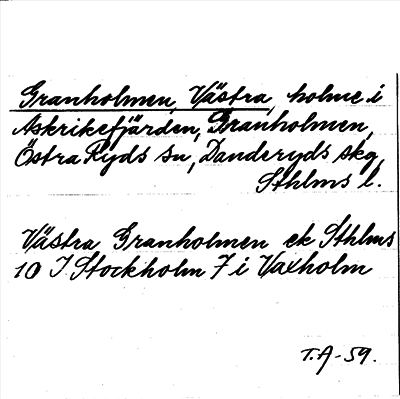 Granholmen, Västra, holme i
Askrikefjärden, Granholmen,
Östra Ryds sn, Danderyds skg,
Sthlms l.
Västra Granholmen ek Sthlms
10 I Stockholm 7 i Vaxholm
T.A-59.